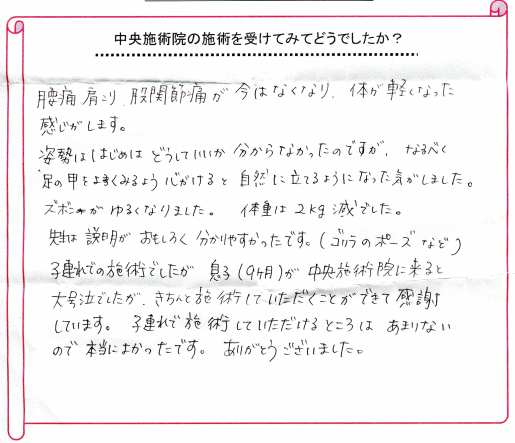 中央施術院の施術を受けてみてどうでしたか？
腰痛 肩こり、股関節痛が 今はなくなり、体が軽くなった
感じがします。
姿勢は はじめは どうしていいか 分からなかったのですが、なるべく
足の甲をよくみるよう心がけると 自然に立てるようになった気がしました。
ズボンが ゆるくなりました。 体重は 2kg減でした。
先生は 説明が おもしろく 分かりやすかったです。(ゴリラのポーズなど)
子連れでの施術でしたが 息子(9ヶ月)が 中央施術院に来ると
大号泣でしたが、きちんと施術していただくことができて 感謝
しています。 子連れで施術していただけるところは あまりない
ので 本当によかったです。 ありがとうございました。